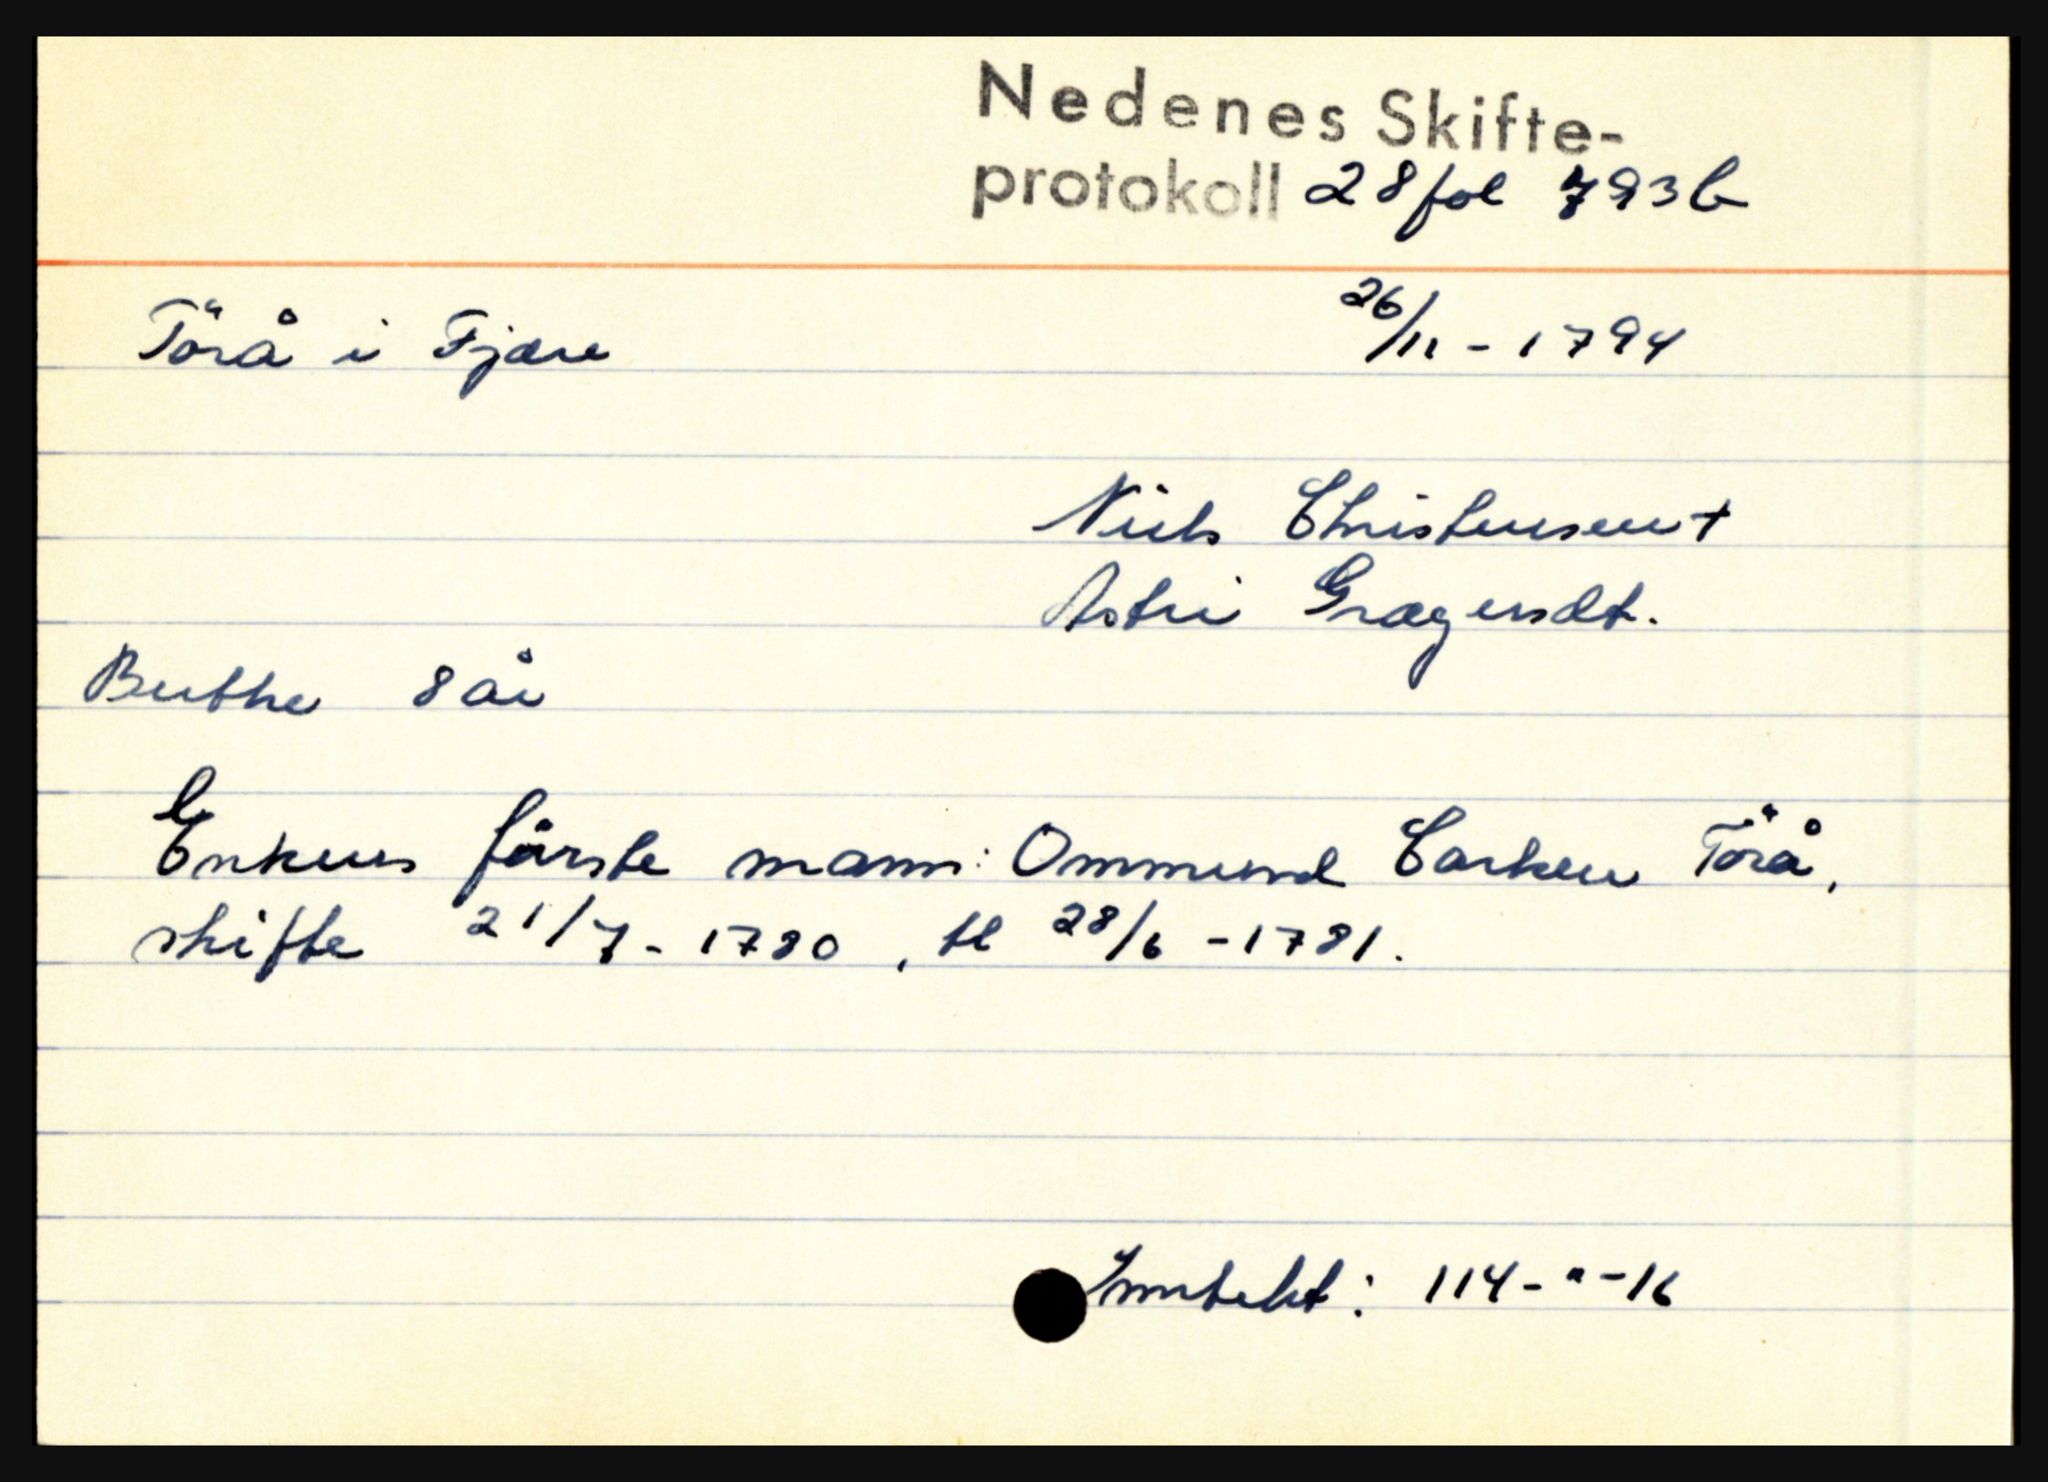 Nedenes Skifte-
protokoll 28 fol 793b
Törå i Fjære 26/11 - 1794
Niels Christensen +
Astri Grægersdt.
Berthe 8 år
Enkens förste mann: Ommund Tarkew Törå,
skifte 21/7 - 1780, tl 28/6 - 1781.
Inntekt: 114 - " - 16